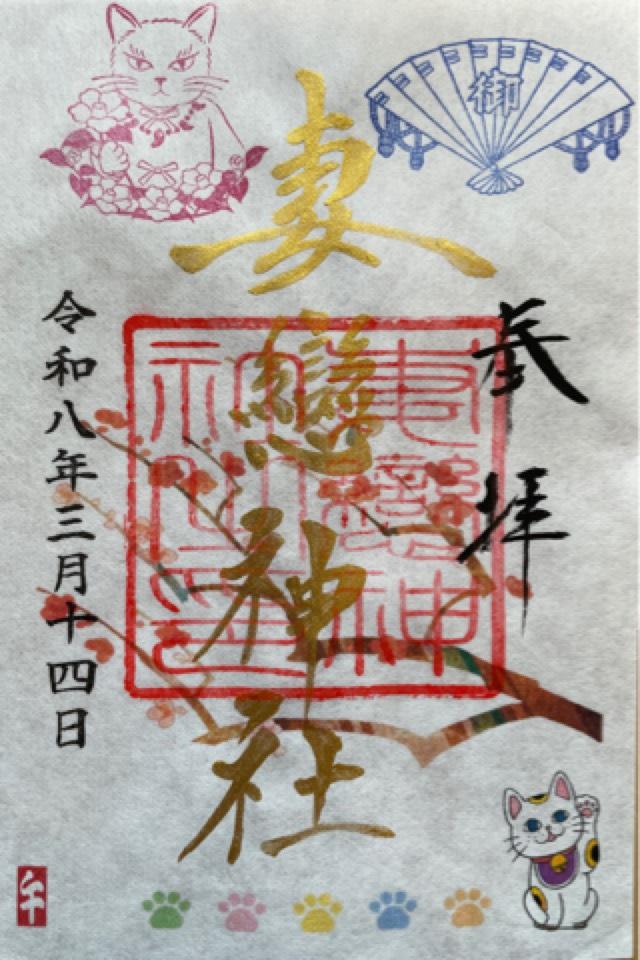 御
奉拝
妻戀神社
令和八年三月十四日
午